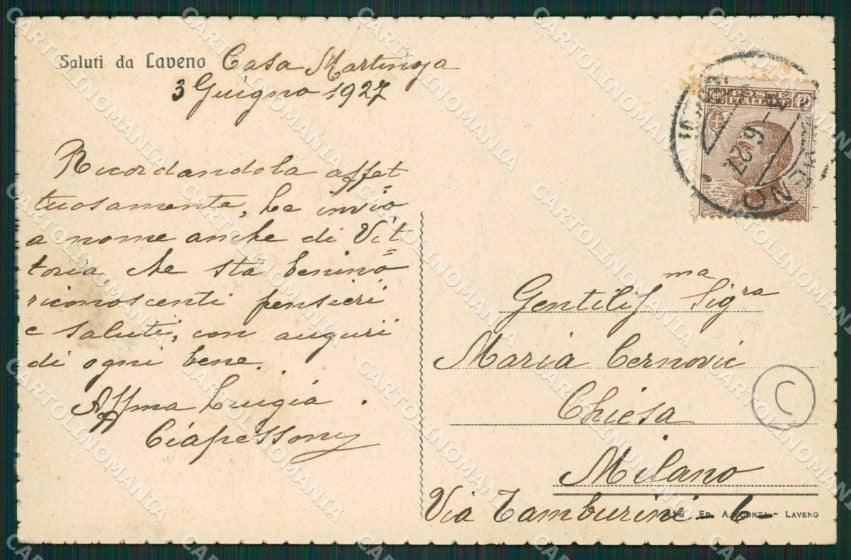 Saluti da Laveno Casa Martinoja
3 Giugno 1927
Ricordandola affet
tuosamente, Le invio
a nome anche di Vit=
toria che sta benino=
riconoscenti pensieri
e saluti, con auguri
di ogni bene.
Affma Luigia
Ciapessony
LAVENO
Gentilissma Sigra
Maria Cernovic
Chiesa
C
Milano
Via Tamburini - 6 -
ED. A. - LAVENO
CARTOLINOMANIA